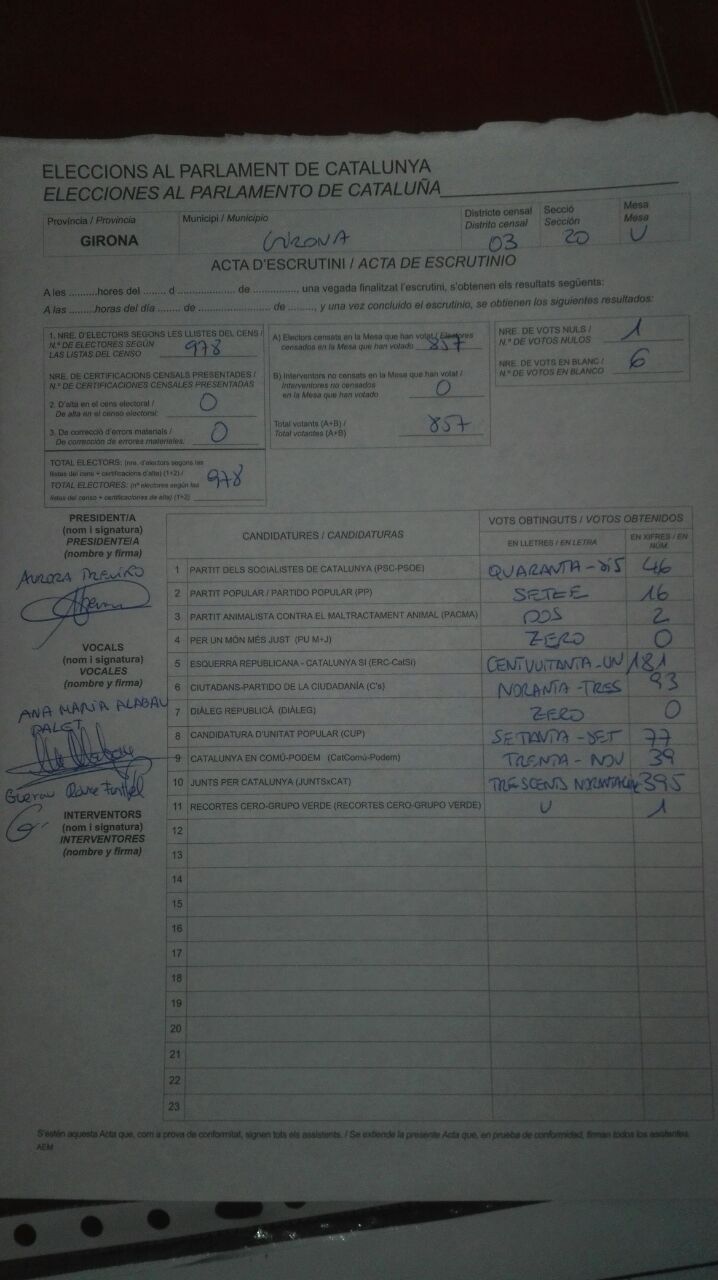 ELECCIONS AL PARLAMENT DE CATALUNYA
ELECCIONES AL PARLAMENTO DE CATALUÑA
Província / Provincia
GIRONA
Municipi / Municipio
GIRONA
Districte censal
Distrito censal
03
Secció
Sección
20
Mesa
Mesa
U
ACTA D'ESCRUTINI / ACTA DE ESCRUTINIO
A les ..........hores del ........ d .................... de .............., una vegada finalitzat l'escrutini, s'obtenen els resultats següents:
A las ..........horas del día ........ de .................... de ........, y una vez concluido el escrutinio, se obtienen los siguientes resultados:
1. NRE. D'ELECTORS SEGONS LES LLISTES DEL CENS /
N.º DE ELECTORES SEGÚN
LAS LISTAS DEL CENSO
978
NRE. DE CERTIFICACIONS CENSALS PRESENTADES /
N.º DE CERTIFICACIONES CENSALES PRESENTADAS
2. D'alta en el cens electoral /
De alta en el censo electoral:
0
3. De correcció d'errors materials /
De corrección de errores materiales:
0
TOTAL ELECTORS: (nre. d'electors segons les
llistes del cens + certificacions d'alta) (1+2) /
TOTAL ELECTORES: (nº electores según las
listas del censo + certificaciones de alta) (1+2)
978
A) Electors censats en la Mesa que han votat / Electores
censados en la Mesa que han votado
857
B) Interventors no censats en la Mesa que han votat /
Interventores no censados
en la Mesa que han votado
0
Total votants (A+B) /
Total votantes (A+B)
857
NRE. DE VOTS NULS /
N.º DE VOTOS NULOS
1
NRE. DE VOTS EN BLANC /
N.º DE VOTOS EN BLANCO
6
PRESIDENT/A
(nom i signatura)
PRESIDENTE/A
(nombre y firma)
AURORA TREVIÑO
VOCALS
(nom i signatura)
VOCALES
(nombre y firma)
ANA MARIA ALABAU
PALET
Guerau
INTERVENTORS
(nom i signatura)
INTERVENTORES
(nombre y firma)
CANDIDATURES / CANDIDATURAS
VOTS OBTINGUTS / VOTOS OBTENIDOS
EN LLETRES / EN LETRA
EN XIFRES / EN NÚM.
1 PARTIT DELS SOCIALISTES DE CATALUNYA (PSC-PSOE) QUARANTA-SIS 46
2 PARTIT POPULAR / PARTIDO POPULAR (PP) SETZE 16
3 PARTIT ANIMALISTA CONTRA EL MALTRACTAMENT ANIMAL (PACMA) DOS 2
4 PER UN MÓN MÉS JUST (PU M+J) ZERO 0
5 ESQUERRA REPUBLICANA - CATALUNYA SI (ERC-CatSí) CENTVUITANTA-UN 181
6 CIUTADANS-PARTIDO DE LA CIUDADANÍA (C's) NORANTA-TRES 93
7 DIÀLEG REPUBLICÀ (DIÀLEG) ZERO 0
8 CANDIDATURA D'UNITAT POPULAR (CUP) SETANTA-SET 77
9 CATALUNYA EN COMÚ-PODEM (CatComú-Podem) TRENTA-NOU 39
10 JUNTS PER CATALUNYA (JUNTSxCAT) TRESCENTS 395
11 RECORTES CERO-GRUPO VERDE (RECORTES CERO-GRUPO VERDE) U 1
12
13
14
15
16
17
18
19
20
21
22
23
S'estén aquesta Acta que, com a prova de conformitat, signen tots els assistents. / Se extiende la presente Acta que, en prueba de conformidad, firman todos los asistentes.
AEM